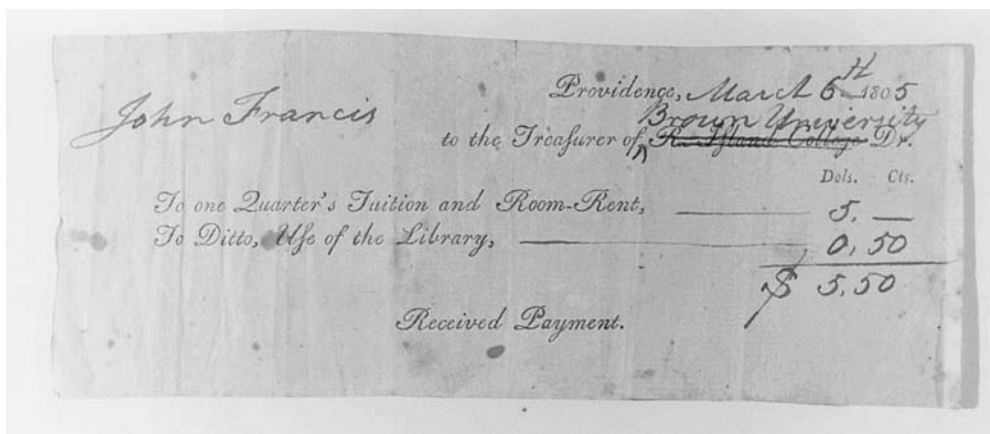 Providence, March 6th 1805
John Francis
Brown University
to the Treaſurer of ‸ R. Iſland College Dr.
Dols. Cts.
To one Quarter's Tuition and Room-Rent, 5. —
To Ditto, Uſe of the Library, 0,50
$ 5.50
Received Payment.